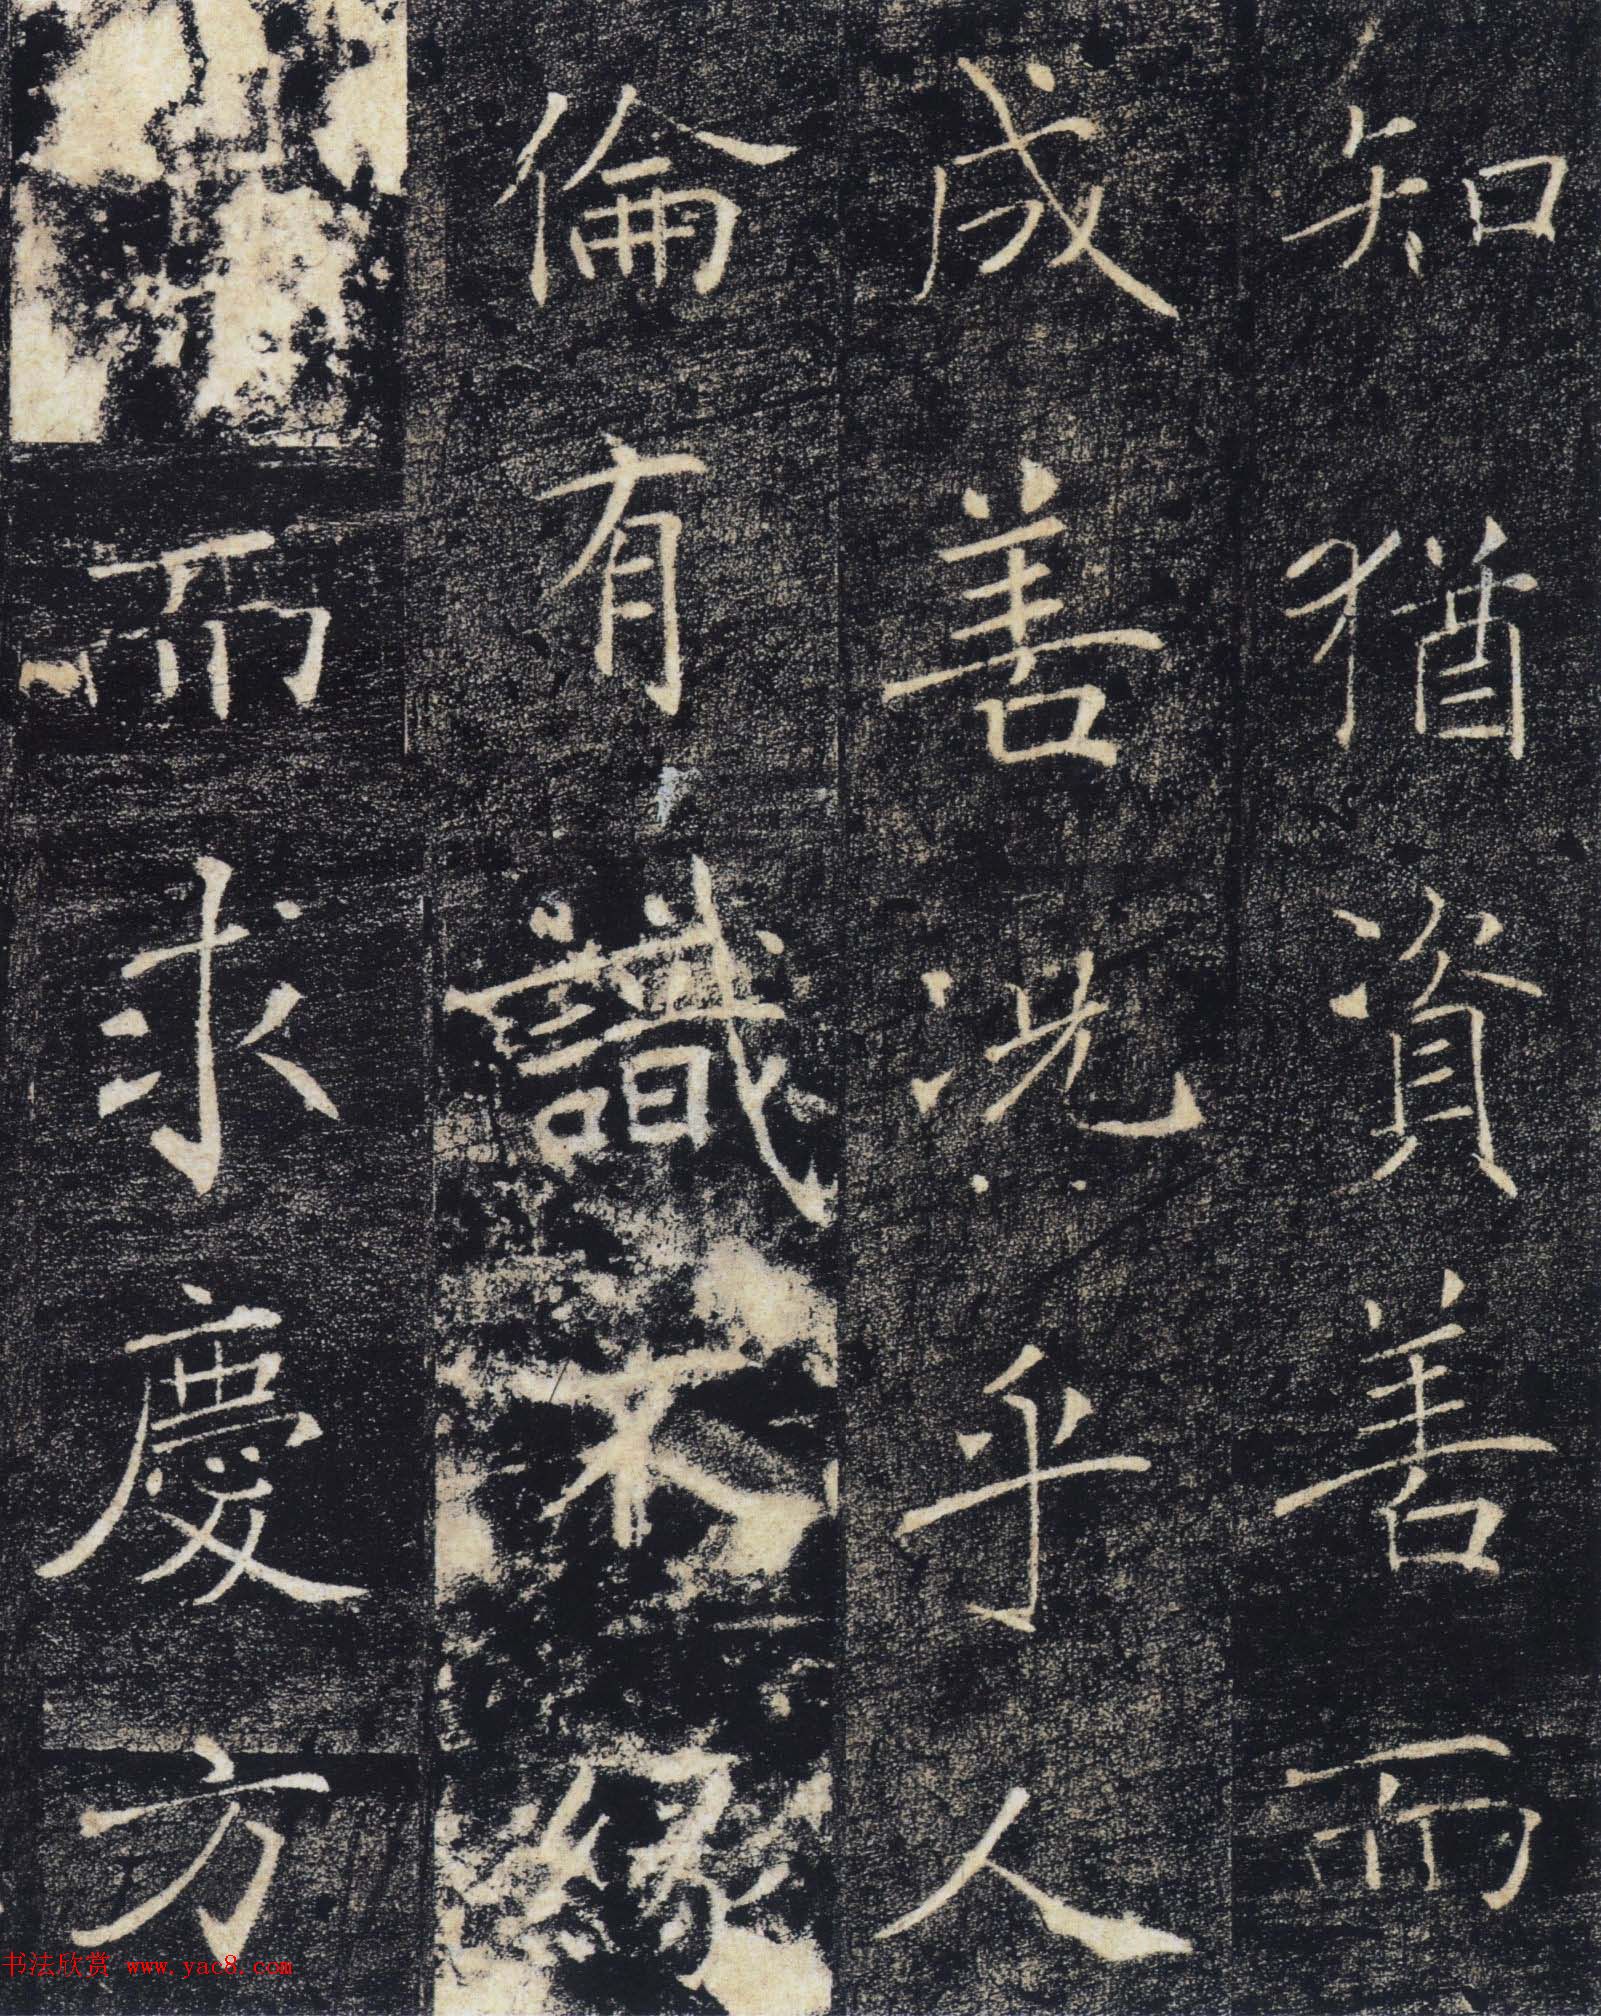 知猶資善而
成善況乎人
倫有識不緣
而求慶方
书法欣赏 www.yac8.com